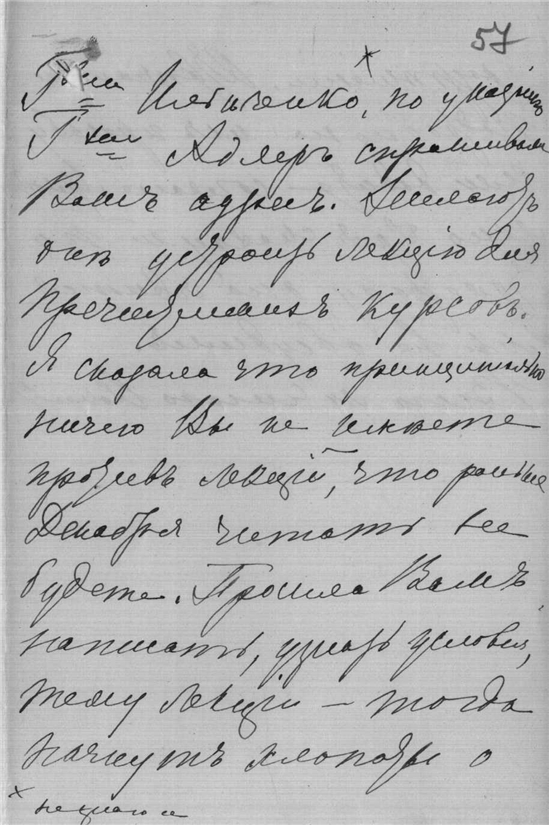 57
Г-жа Ильченко, по указанию
Г-жи Адлеръ спрашивала
Вашъ адресъ.
они устроить лекцію для
Пречистенскихъ Курсовъ.
Я сказала что принципіально
ничего Вы не имѣете
противъ лекцій, что раньше
Декабря читать не
будете. Просила Вамъ
написать, узнать условія,
тему лекціи — тогда
начнутъ хлопоты о